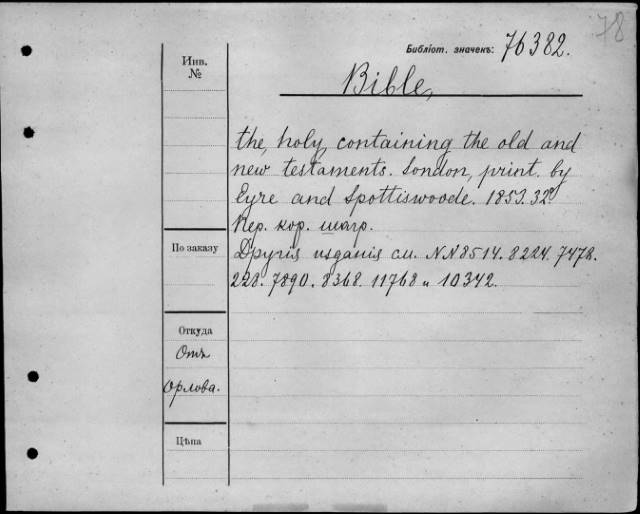 78
Библіот. значекъ: 76382.
Инв.
№
Bible,
the, holy, containing the old and
new testaments. London, print. by
Eyre and Spottiswoode. 1853. 32º
Пер. кор. шагр.
По заказу
Другія изданія см. NN 8514. 8224. 7478.
228. 7890. 8368. 11768 и 10342.
Откуда
Отъ
Орлова.
Цѣна